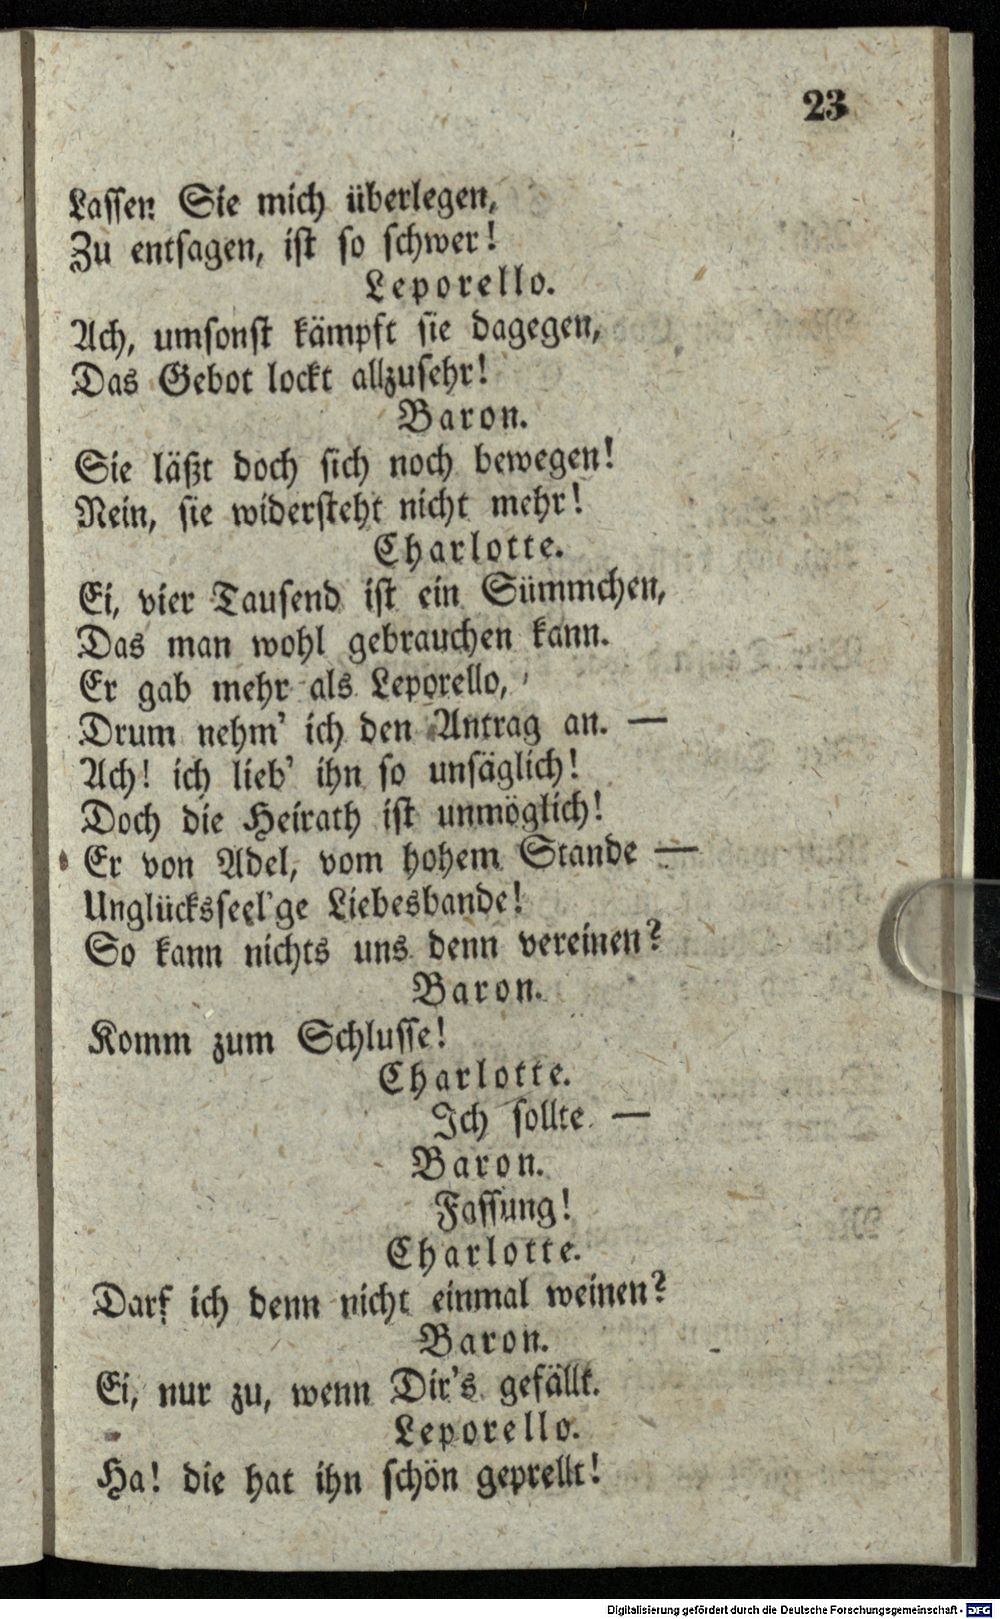 23
Lassen Sie mich überlegen,
Zu entsagen, ist so schwer!
Leporello.
Ach, umsonst kämpft sie dagegen,
Das Gebot lockt allzusehr!
Baron.
Sie läßt doch sich noch bewegen!
Nein, sie widersteht nicht mehr!
Charlotte.
Ei, vier Tausend ist ein Sümmchen,
Das man wohl gebrauchen kann.
Er gab mehr als Leporello,
Drum nehm' ich den Antrag an. —
Ach! ich lieb' ihn so unsäglich!
Doch die Heirath ist unmöglich!
Er von Adel, vom hohem Stande —
Unglücksseel'ge Liebesbande!
So kann nichts uns denn vereinen?
Baron.
Komm zum Schlusse!
Charlotte.
Ich sollte —
Baron.
Fassung!
Charlotte.
Darf ich denn nicht einmal weinen?
Baron.
Ei, nur zu, wenn Dir's gefällt.
Leporello.
Ha! die hat ihn schön geprellt!
Digitalisierung gefördert durch die Deutsche Forschungsgemeinschaft - DFG